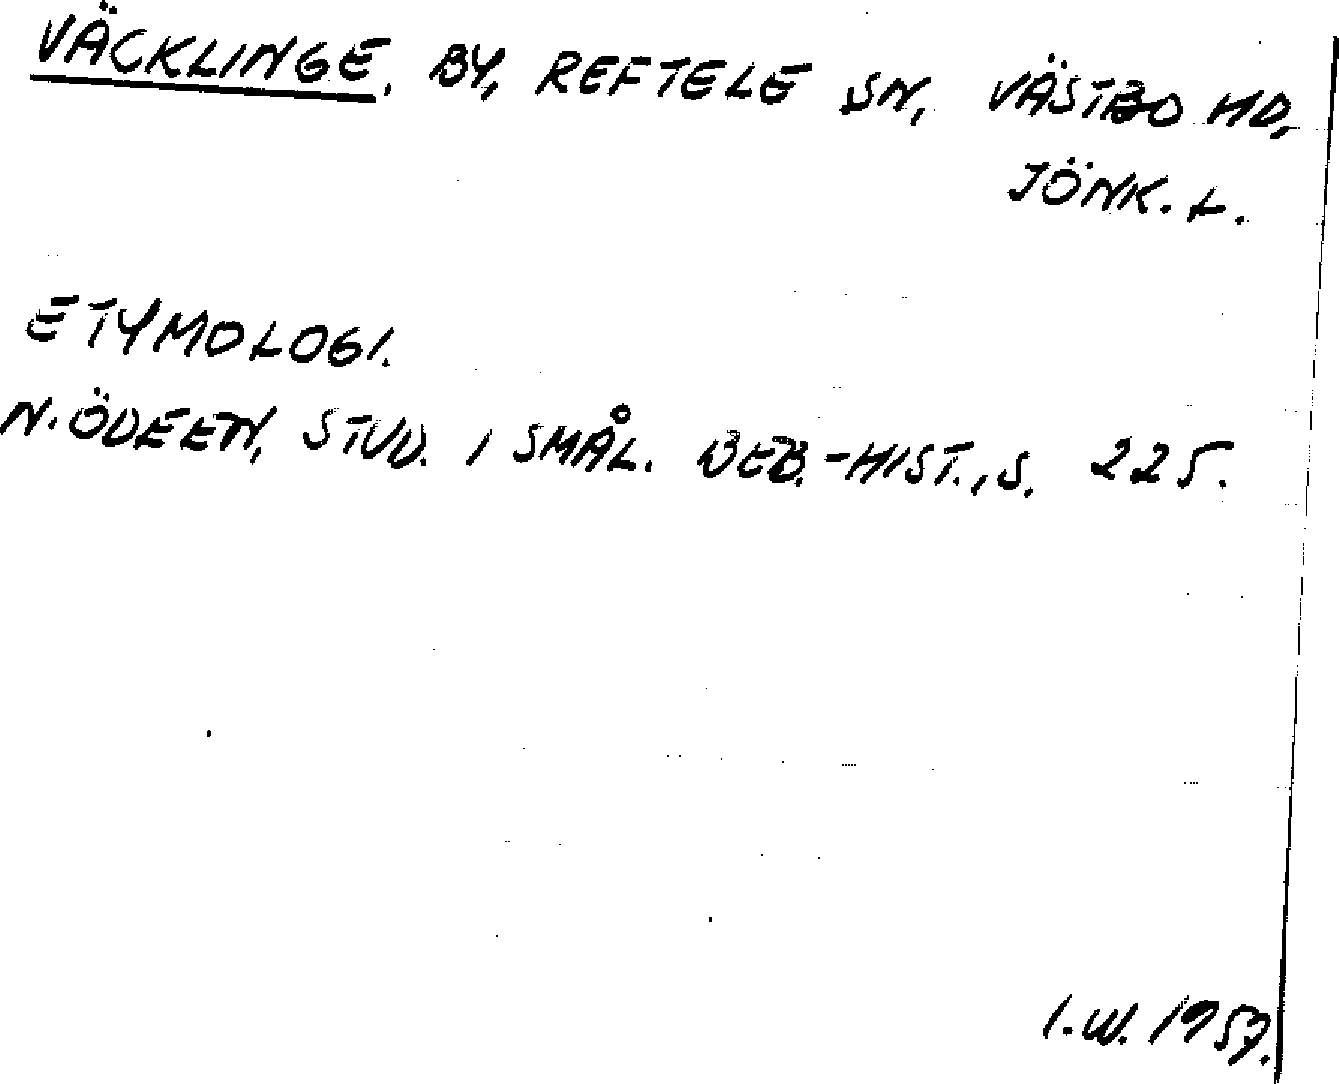 VÄCKLINGE, BY, REFTELE SN, VÄSTBO HD,
JÖNK. L.
ETYMOLOGI.
N. ÖDEEN, STUD. I SMÅL. BEB.-HIST., S. 225.
I.W. 1957.